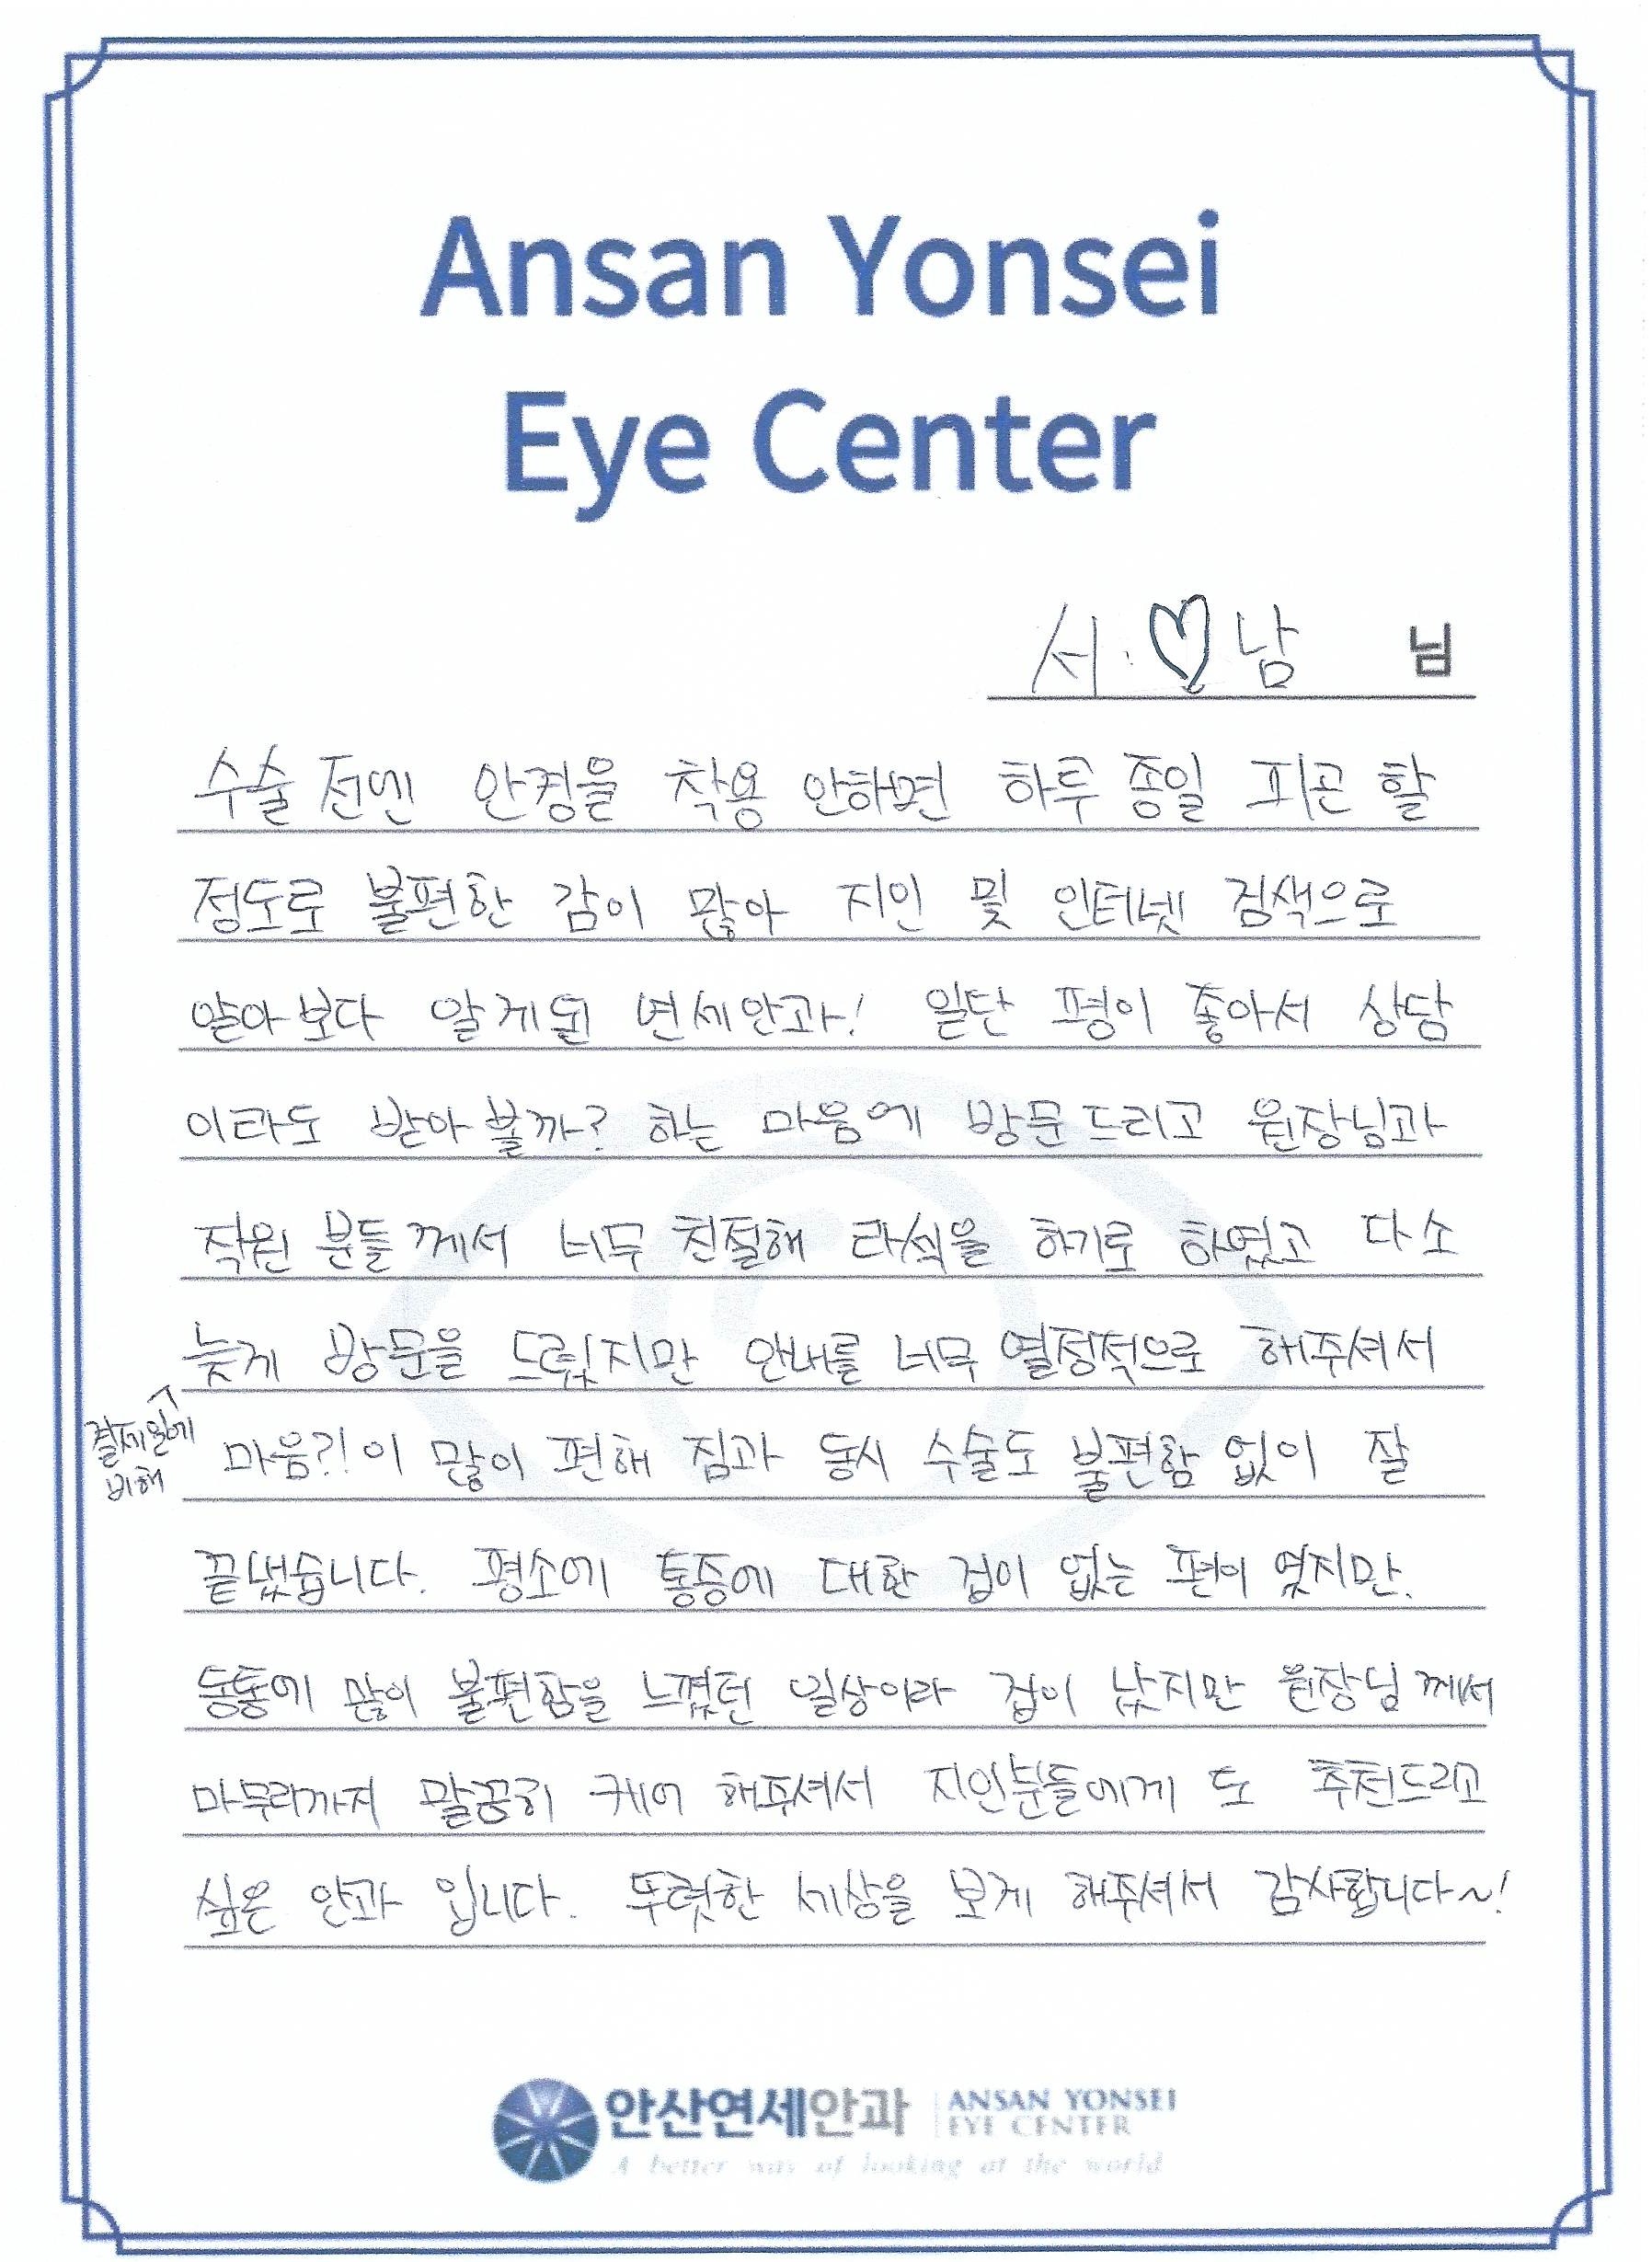 Ansan Yonsei
Eye Center
서.♡남 님
수술 전엔 안경을 착용 안하면 하루 종일 피곤 할
정도로 불편한 감이 많아 지인 및 인터넷 검색으로
알아보다 알게된 연세안과! 일단 평이 좋아서 상담
이라도 받아볼까? 하는 마음에 방문드리고 원장님과
직원 분들께서 너무 친절해 라섹을 하기로 하였고 다소
늦게 방문을 드렸지만 안내를 너무 열정적으로 해주셔서
결제일에
비해
마음?!이 많이 편해 짐과 동시 수술도 불편함 없이 잘
끝냈습니다. 평소에 통증에 대한 겁이 없는 편이 였지만.
동통에 많이 불편함을 느꼈던 일상이라 겁이 났지만 원장님께서
마무리까지 말끔히 케어 해주셔서 지인분들에게 도 추천드리고
싶은 안과 입니다. 뚜렷한 세상을 보게 해주셔서 감사합니다~!
안산연세안과 ANSAN YONSEI
EYE CENTER
A better way of looking at the world